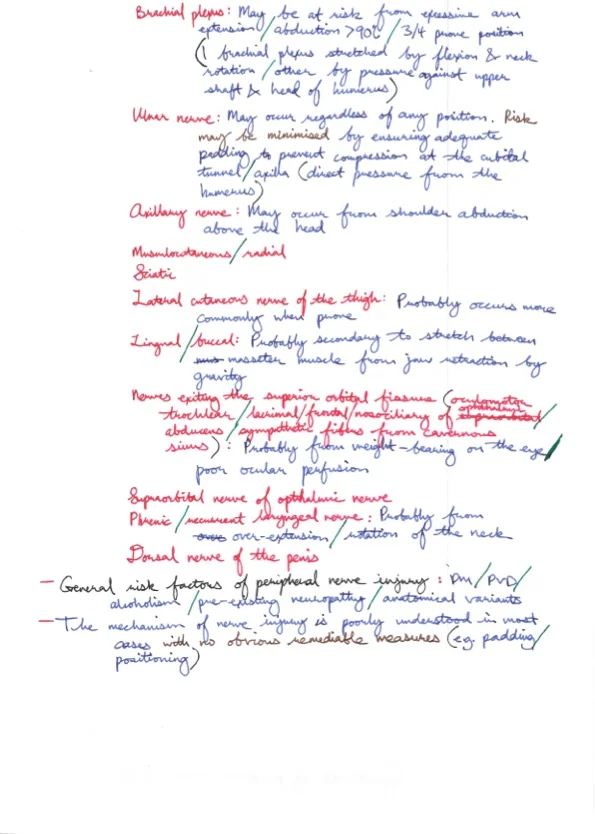 Brachial plexus: May be at risk from excessive arm
extension/abduction >90%/3/4 prone position
(1 brachial plexus stretched by flexion & neck
rotation/other by pressure against upper
shaft & head of humerus)
Ulnar nerve: May occur regardless of any position. Risk
may be minimised by ensuring adequate
padding to prevent compression at the cubital
tunnel/axilla (direct pressure from the
humerus)
Axillary nerve: May occur from shoulder abduction
above the head
Musculocutaneous/radial
Sciatic
Lateral cutaneous nerve of the thigh: Probably occurs more
commonly when prone
Lingual/buccal: Probably secondary to stretch between
masseter muscle from jaw retraction by
gravity
Nerves exiting the superior orbital fissure (oculomotor
trochlear/lacrimal/frontal/nasociliary of opthalmic
abducens/sympathetic fibres from cavernous
sinus): Probably from weight-bearing on the eye/
poor ocular perfusion
Supraorbital nerve of opthalmic nerve
Phrenic/recurrent laryngeal nerve: Probably from
over-extension/rotation of the neck
Dorsal nerve of the penis
- General risk factors of peripheral nerve injury: DM/PVD/
alcoholism/pre-existing neuropathy/anatomical variants
- The mechanism of nerve injury is poorly understood in most
cases with no obvious remediable measures (e.g. padding/
positioning)